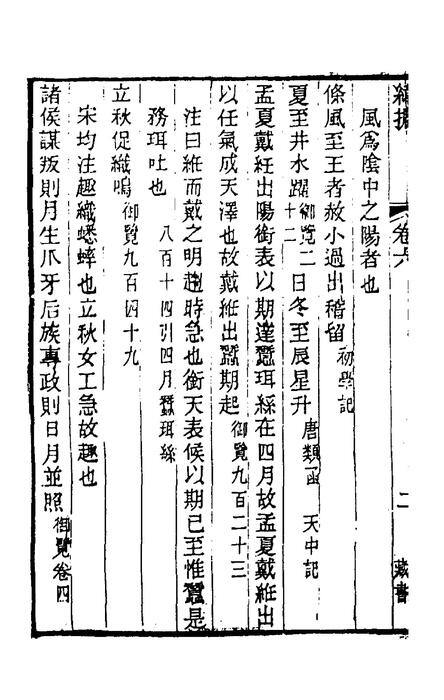 緯攟
卷六
二
藏書
風爲陰中之陽者也
條風至王者赦小過出稽留初學記
夏至井水躍御覽二十二日冬至辰星升唐類函 天中記
孟夏戴紝出陽衝表以期達蠶珥絲在四月故孟夏戴紝出
以任氣成天澤也故戴紝出蠶期起御覽九百二十三
注曰紝而戴之明趣時急也衝天表候以期已至惟蠶是
務珥吐也八百十四引四月蠶珥絲
立秋促織鳴御覽九百四十九
宋均注趣織蟋蟀也立秋女工急故趣也
諸侯謀叛則月生爪牙后族專政則日月並照御覽卷四